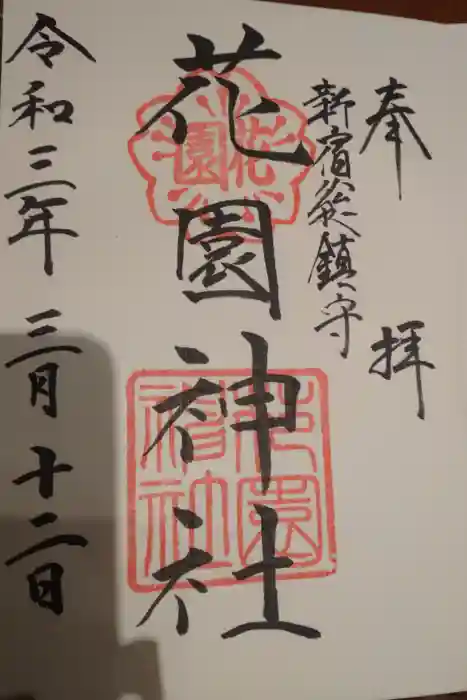 奉拝
新宿総鎮守
花園神社
令和三年三月十二日
花園
花園神社